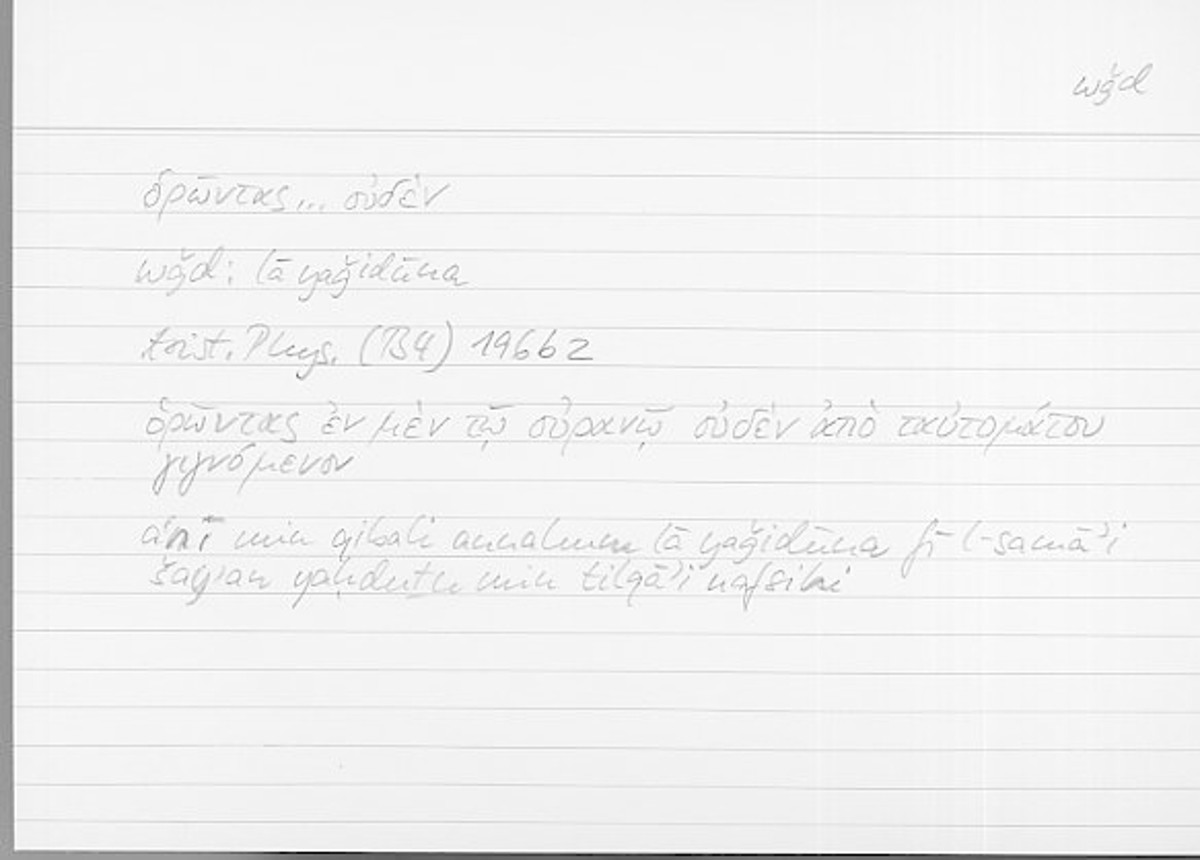 wǧd
ὁρῶντας... οὐδέν
wǧd: lā yaǧidūna
Arist. Phys. (B4) 196b2
ὁρῶντας ἐν μὲν τῷ οὐρανῷ οὐδὲν ἀπὸ ταὐτομάτου
γιγνόμενον
aʿnī min qibali annahum lā yaǧidūna fī l-samāʾi
šayʾan yaḥduṯu min tilqāʾi nafsihi